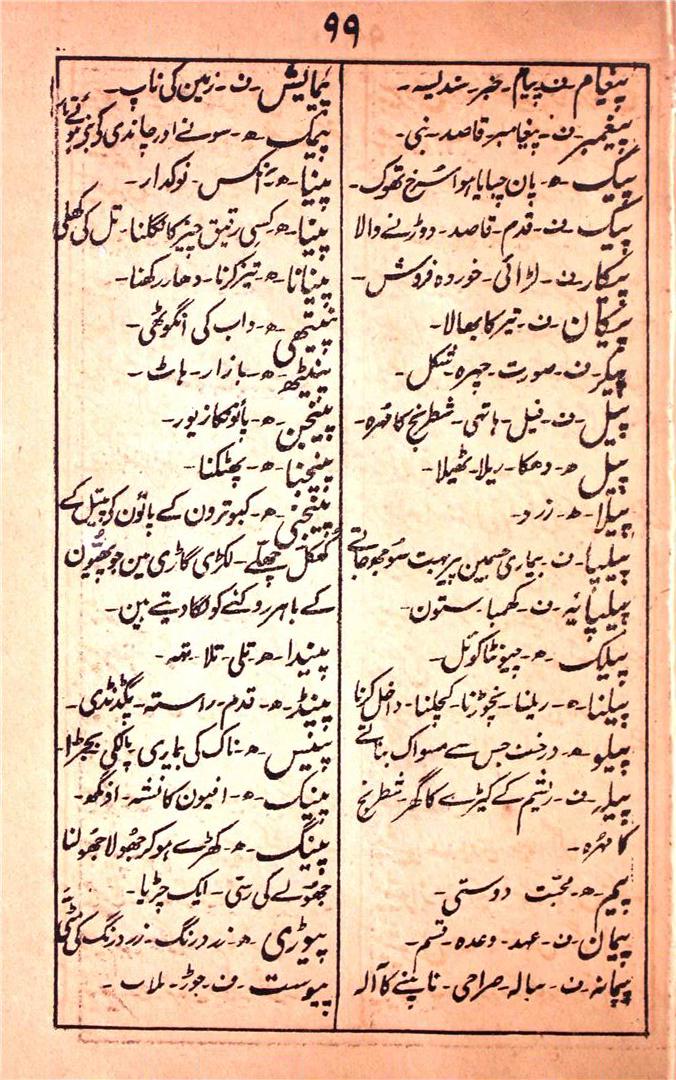 ۹۹
پیغام۔ ف۔ پیام۔ خبر۔ سندیسہ۔
پیغمبر۔ ف۔ پیغامبر۔ قاصد۔ نبی۔
پیک۔ ھ۔ پان چبایا ہوا سُرخ تھوک۔
پیک۔ ف۔ قدم۔ قاصد۔ دوڑنے والا
پیکار۔ ف۔ لڑائی۔ خوردہ فروش۔
پیکان۔ ف۔ تیر کا بھالا۔
پیکر۔ ف۔ صورت۔ چہرہ۔ شکل۔
پیل۔ ف۔ فیل۔ ہاتھی۔ شطرنج کا مُہرہ۔
پیل۔ ھ۔ دھکا۔ ریلا۔ ٹھیلا۔
پیلا۔ ھ۔ زرد۔
پیلپا۔ ف۔ بیماری جسمین پیر بہت سُوجھ جاتے
پیلپایہ۔ ف۔ کھمبا۔ ستون۔
پیلک۔ ھ۔ چیونٹا کوئل۔
پیلنا۔ ھ۔ ریلنا۔ نچوڑنا۔ کچلنا۔ داخل کرنا
پیلو۔ ھ۔ درخت جس سے مسواک بناتے
پیلہ۔ ف۔ ریشم کے کیڑے کا گھر۔ شطرنج
کا مہرہ۔
پیم۔ ھ۔ محبّت دوستی۔
پیمان۔ ف۔ عہد۔ وعدہ۔ قسم۔
پیمانہ۔ ف۔ صراحی۔ ناپنے کا آلہ
پیمایش۔ ف۔ زمین کی ناپ۔
پیمک۔ ھ۔ سونے اور چاندی کی
پینا۔ ھ۔ نوکدار۔
پینا۔ ھ۔ کسی رقیق چیز کا نگلنا۔ تل کی کھلی
پینانا۔ ھ۔ تیز کرنا۔ دھار رکھنا۔
پینتھی۔ ھ۔ داب کی انگوٹھی۔
پینٹھ۔ ھ۔ بازار۔ ہاٹ۔
پینجن۔ ھ۔ پانوکا زیور۔
پینجنا۔ ھ۔ پھٹکنا۔
پینجنی۔ ھ۔ کبوترون کے پانون کو پیتل کے
چھلّے۔ لکڑی گاڑی مین جو پہیّون
کے باہر روکنے کو لگا دیتے ہین۔
پیندا۔ ھ۔ تلی۔ تلا۔ تہہ۔
پینڈ۔ ھ۔ قدم۔ راستہ۔ پگڈنڈی۔
پینس۔ ھ۔ ناک کی بیماری پالکی بچھڑا۔
پینک۔ ھ۔ افیون کا نشہ۔ اونگھ۔
پینگ۔ ھ۔ کھڑے ہوکر جھُولا جھُولنا
جھُولے کی رسّی۔ ایک چڑیا۔
پیوڑی۔ ھ۔ زرد رنگ۔ زرد رنگ کی مٹی
پیوست۔ ف۔ جوڑ۔ ملاب۔